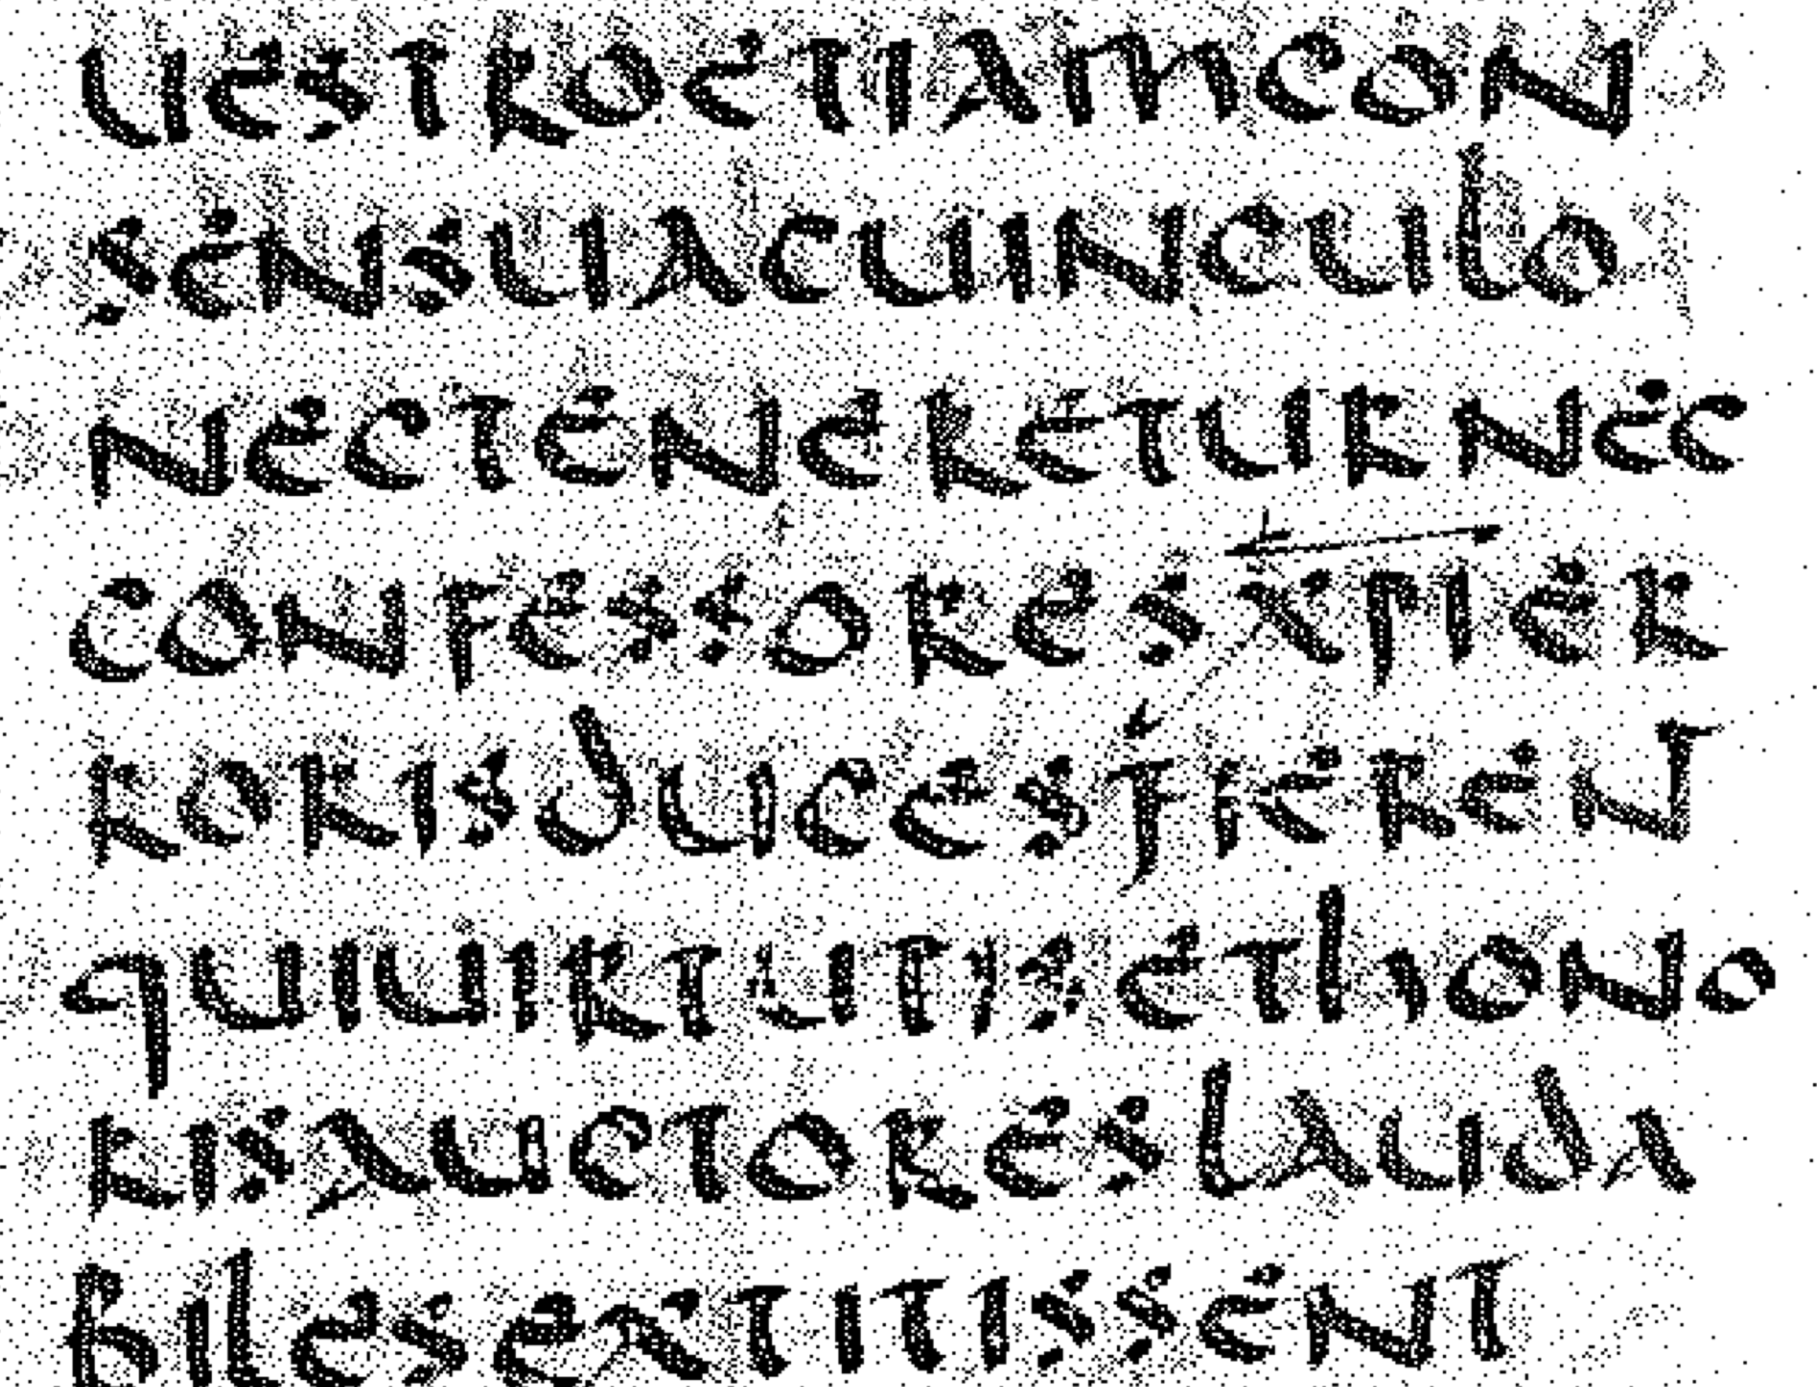 UESTROETIAMCON
SENSUACUINCULO
NECTENERETURNEC
CONFESSORESXPIER
RORISDUCESFIERENT
QUIUIRTUTISETHONO
RISAUCTORESLAUDA
BILESEXTITISSENT